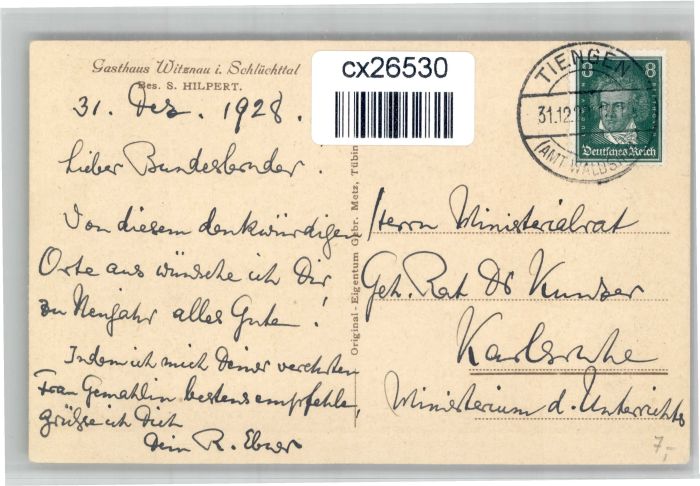 Gasthaus Witznau i. Schlüchttal
Bes. S. HILPERT.
31. Dez. 1928.
Lieber Bundesbruder.
Von diesem denkwürdigen
Orte aus wünsche ich Dir
zu Neujahr alles Gute!
Indem ich mich Deiner verehrten
Frau Gemahlin bestens empfehle,
grüsse ich Dich
Dein R. Ebner
cx26530
Original-Eigentum Gebr. Metz, Tübin
TIENGEN
31.12.2
(AMT WALDS
8 8
Deutsches Reich
Herrn Ministerialrat
Geh. Rat Dr Kunzer
Karlsruhe
Ministerium d. Unterrichts
7,-